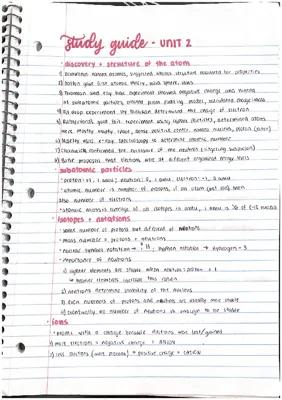 study guide - UNIT 2
· discovery + structure of the atom
1) Democritus named atomos, suggested atomic structure accounted for properties
2) Dalton gave first atomic theory, solid sphere
3) Thomson and ray tube experiment showed negative charge and
of subatomic particles, created plum pudding model, calculated charge/mass
4) oil drop experiment by Millikan determined the charge of electron
5) Rutherford's gold foil experiment using alpha particles, determined atoms
were mostly empty space, dense positive center, named nucleus, proton
6) Moseley used x-ray spectroscopy to determine atomic number
7) Chadwick confirmed the existence of the neutron
8) Bohr proposed that electrons were at different organized energy levels
· subatomic particles
· proton: +1, 1 amu; neutron: 0, 1 amu; electron: -1, 0 amu
· atomic number = number of protons, if an atom (not ion) then
also number of electrons
· atomic mass = average of all isotopes in amu, 1 amu is 1/12 of C-12 nucleus
· isotopes + notations
· same number of protons but different # neutrons
· mass number = protons + neutrons
· nuclear symbol notation → H, hyphen notation → hydrogen - 3
· importance of neutrons
1) lighter elements are stable when neutron : proton = 1
↳ heavier elements increase this ratio
2) neutrons determine stability of the nucleus
3) even numbers of protons and neutrons are usually more stable
4) eventually, no number of neutrons is enough to be stable
· ions
· atoms with a charge because electrons was lost/gained
1) more electrons = negative charge = ANION
2) less electrons (more protons) = positive charge = CATION